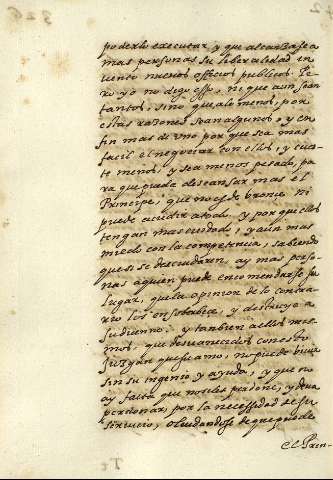 poderlo executar, y que alcanzase a
mas personas su liberalidad en
siendo muchos officios publicos. Pe-
ro yo no digo esso, ni que aun sean
tantos, sino que alomenos, por
estas razones sean algunos, y en
fin mas de uno por que sea mas
facil el negociar con ellos, y cues-
te menos, y sea menos pesado, pa
ra que pueda descansar mas el
Principe, que no es de bronce ni
puede acudir a todo. y porque ellos
tengan mas cuidado, y aun mas
miedo con la competencia, sabiendo
que si se descuidaren, ay mas perso-
nas a quien puede encomendarse su
lugar, que la opinion de lo contra-
rio los ensoberbia, y destruye a
su dueño. y tambien a ellos mes-
mos, que desvanecidos con esto
Juzgan que su amo, no puede bivir
sin su ingenio y ayuda, y que no
ay falta que no se les perdone, y deva
perdonar, por la necessidad de su
servicio, olvidandose de que puede
el Prin-